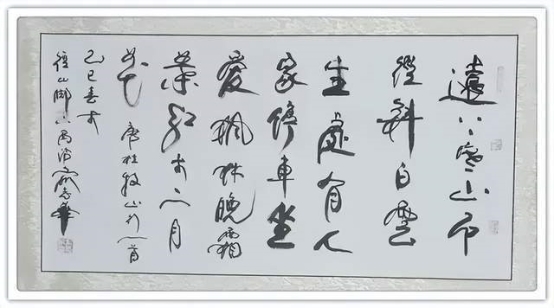 遠上寒山石
徑斜白雲
生處有人
家停車坐
愛楓林晚霜
葉紅於二月
花 唐杜牧山行一首
巳春於
徑山腳下